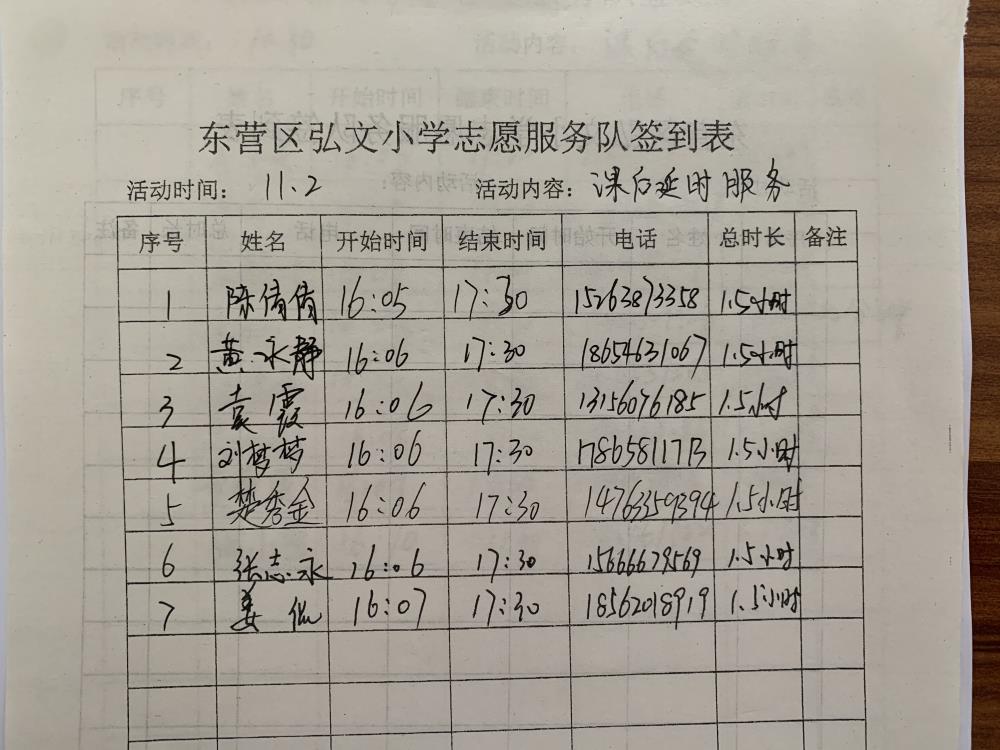 东营区弘文小学志愿服务队签到表
活动时间: 11.2 活动内容: 课后延时服务
序号 姓名 开始时间 结束时间 电话 总时长 备注
1 陈倩倩 16:05 17:30 15263873358 1.5小时
2 黄永静 16:06 17:30 18654631067 1.5小时
3 袁霞 16:06 17:30 13156076185 1.5小时
4 刘梦梦 16:06 17:30 17865811713 1.5小时
5 楚秀金 16:06 17:30 14763359394 1.5小时
6 张志永 16:06 17:30 15666679569 1.5小时
7 姜 16:07 17:30 18562018919 1.5小时